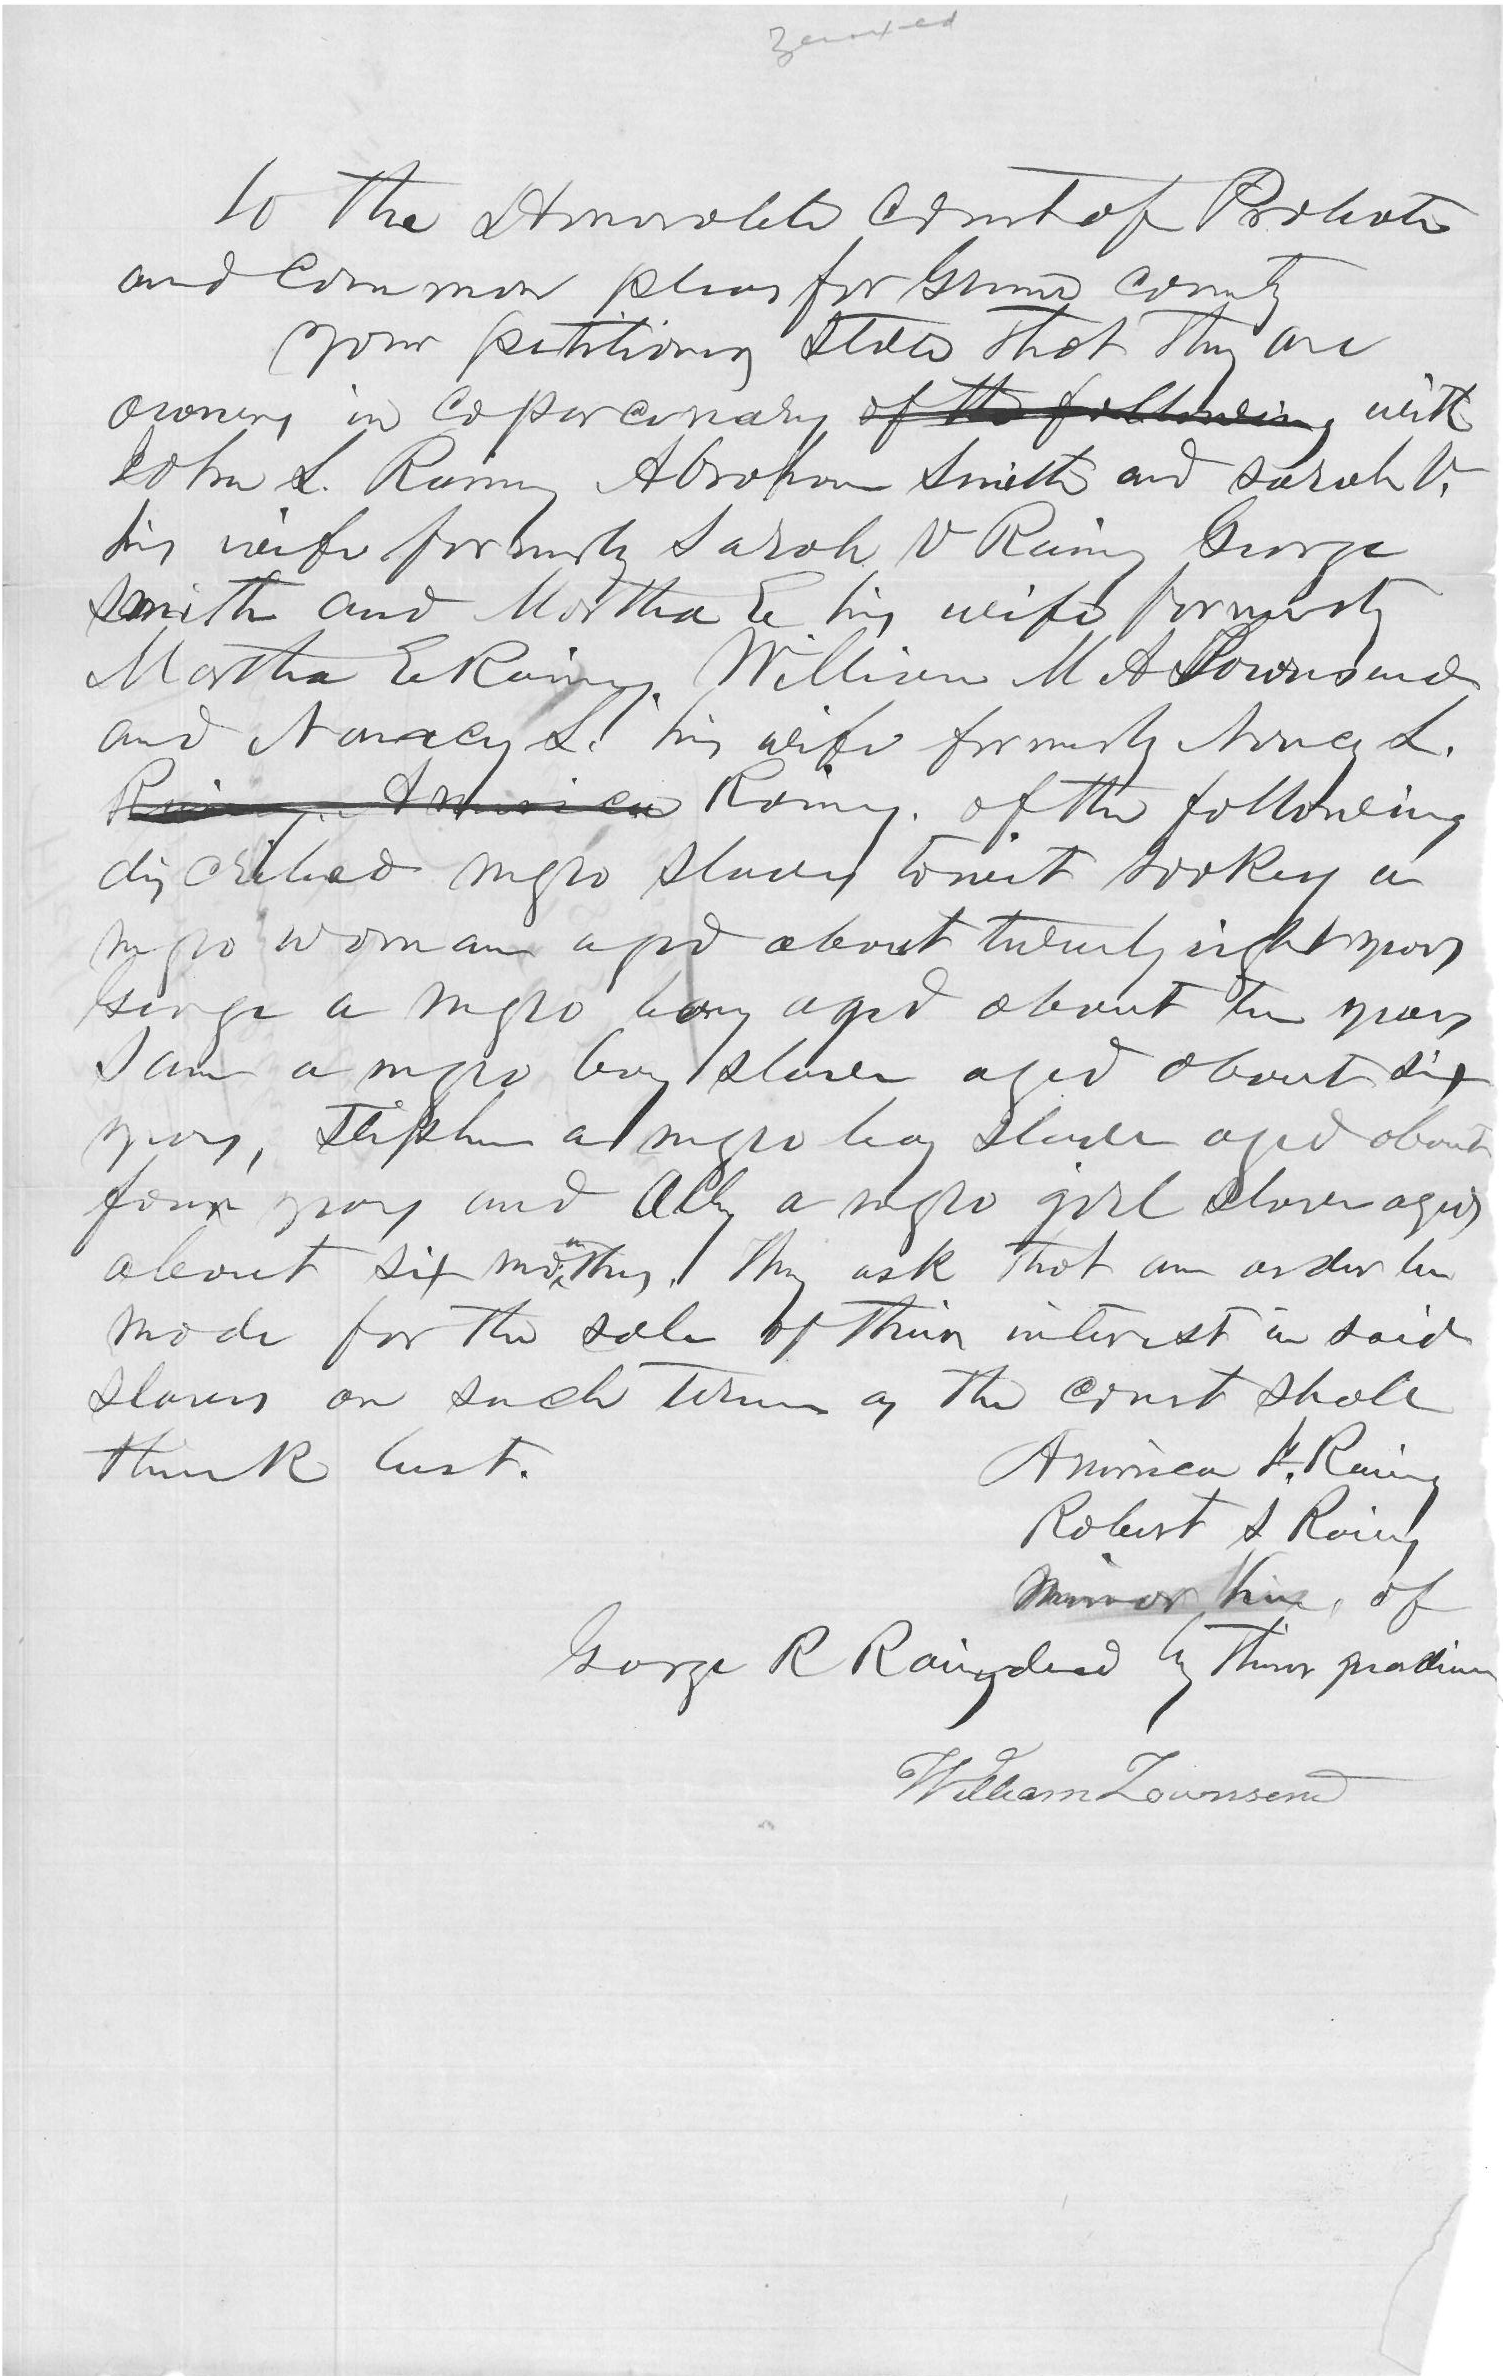 Xeroxed
to The Honorable Court of Probate
and Common pleas for Greene County
your petitioners States that they are
owners in Coparcenary of the following with
John L. Rainey Abraham Smith and Sarah V.
his wife formerly Sarah V Rainey George
Smith and Martha E his wife formerly
Martha E Rainey. William M A Townsend
and Nancy L. his wife formerly Nancy L.
Rainey. America Rainey. of the following
discribed negro slaves towit Sookey a
negro woman aged about twenty eight years
George a negro boy aged about ten years
Sam a negro boy slave aged about six
years, Stephen a negro boy slave aged about
four years and Ally a negro girl slave aged
about six months. They ask that an order be
made for the sale of their interest in said
slaves on such terms as the court shall
think best.
America F. Rainey
Robert S Rainey
minor heirs of
George R Rainey decd by their guardian
William Townsend